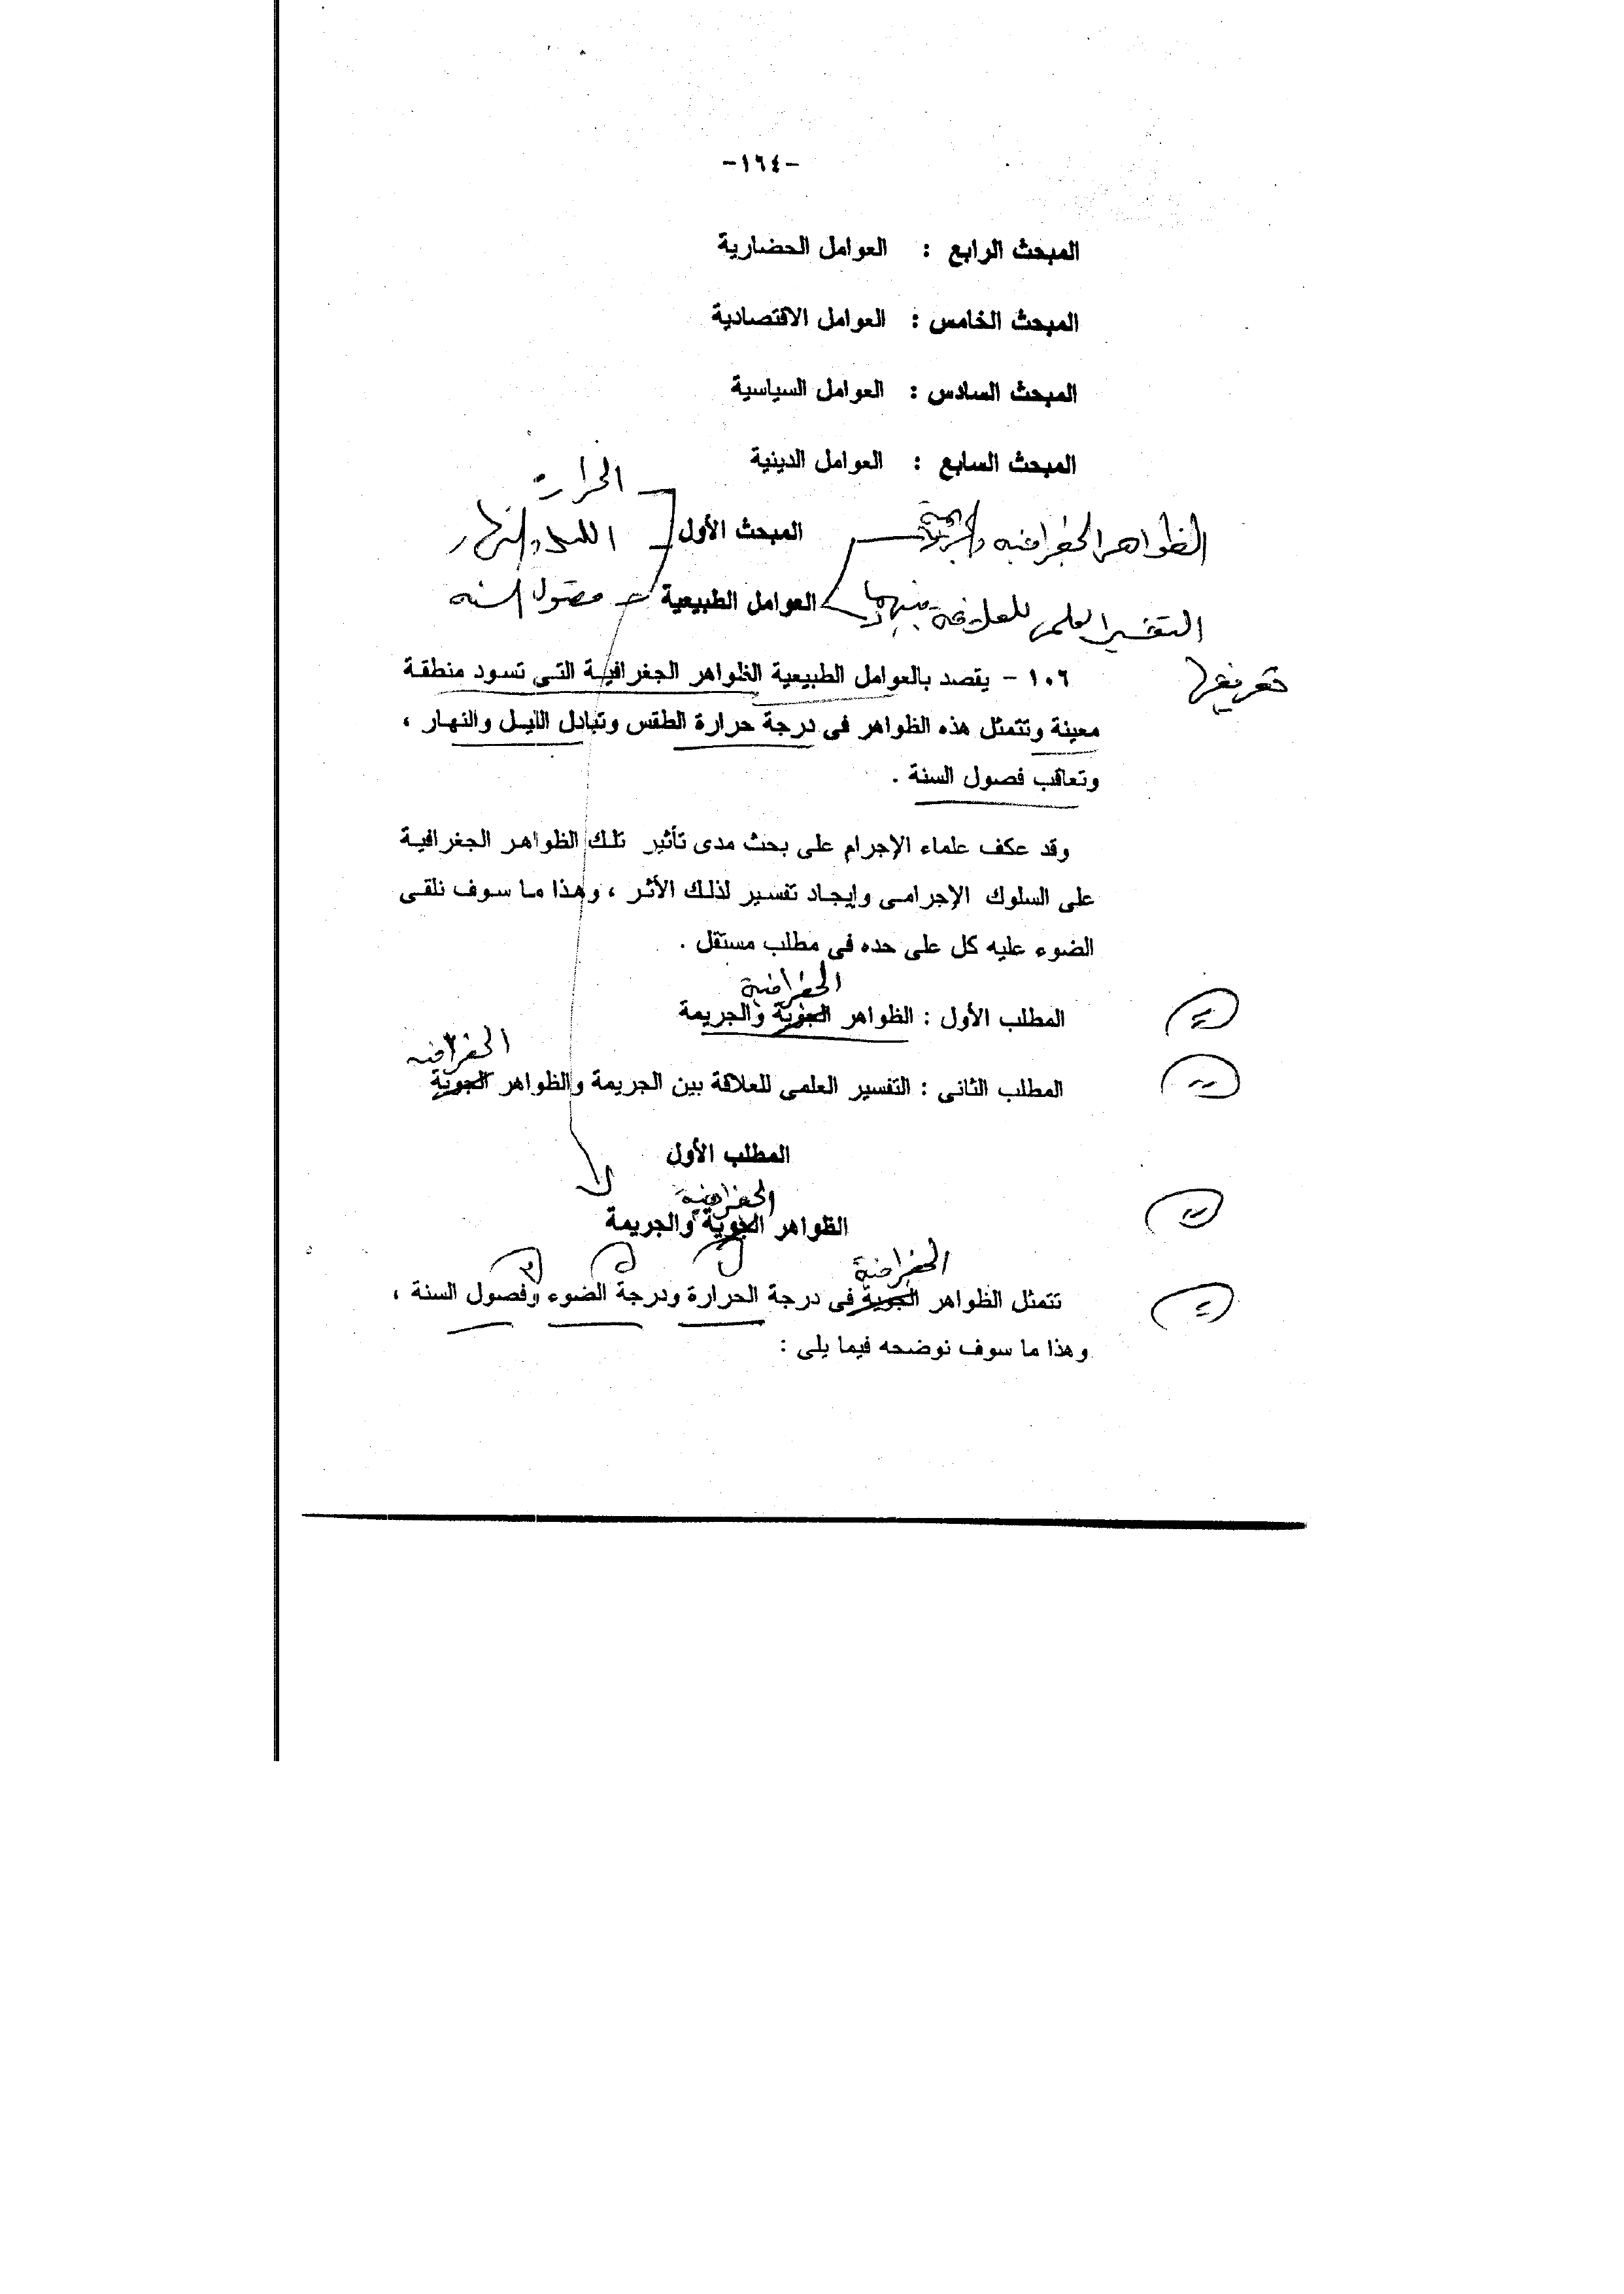 -١٦٤-
المبحث الرابع : العوامل الحضارية
المبحث الخامس : العوامل الاقتصادية
المبحث السادس : العوامل السياسية
المبحث السابع : العوامل الدينية
الحرارة
المبحث الأول
الليل والنهار
الظواهر الجغرافيه والجريمة
العوامل الطبيعية
فصول السنه
التفسير العلمى للعلاقة بينهما
تعريفها
١٠٦ - يقصد بالعوامل الطبيعية الظواهر الجغرافيـة التـى تسود منطقـة
معينة وتتمثل هذه الظواهر فى درجة حرارة الطقس وتبادل الليـل والنهـار ،
وتعاقب فصول السنة .
وقد عكف علماء الإجرام على بحث مدى تأثير تلـك الظواهـر الجغرافيـة
على السلوك الإجرامـى وإيجـاد تفسـير لذلـك الأثـر ، وهـذا مـا سـوف نلقـى
الضوء عليه كل على حده فى مطلب مستقل .
الجغرافية
المطلب الأول : الظواهر الجوية والجريمة
الجغرافيه
المطلب الثانى : التفسير العلمى للعلاقة بين الجريمة والظواهر الجوية
المطلب الأول
الجغرافية
الظواهر الجوية والجريمة
الجغرافية
تتمثل الظواهر الجوية فى درجة الحرارة ودرجة الضوء وفصول السنة ،
وهذا ما سوف نوضحه فيما يلى :